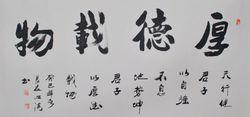 厚德載物
天行健
君子
以自強
不息
地勢坤
君子
以厚德
載物
癸巳
書